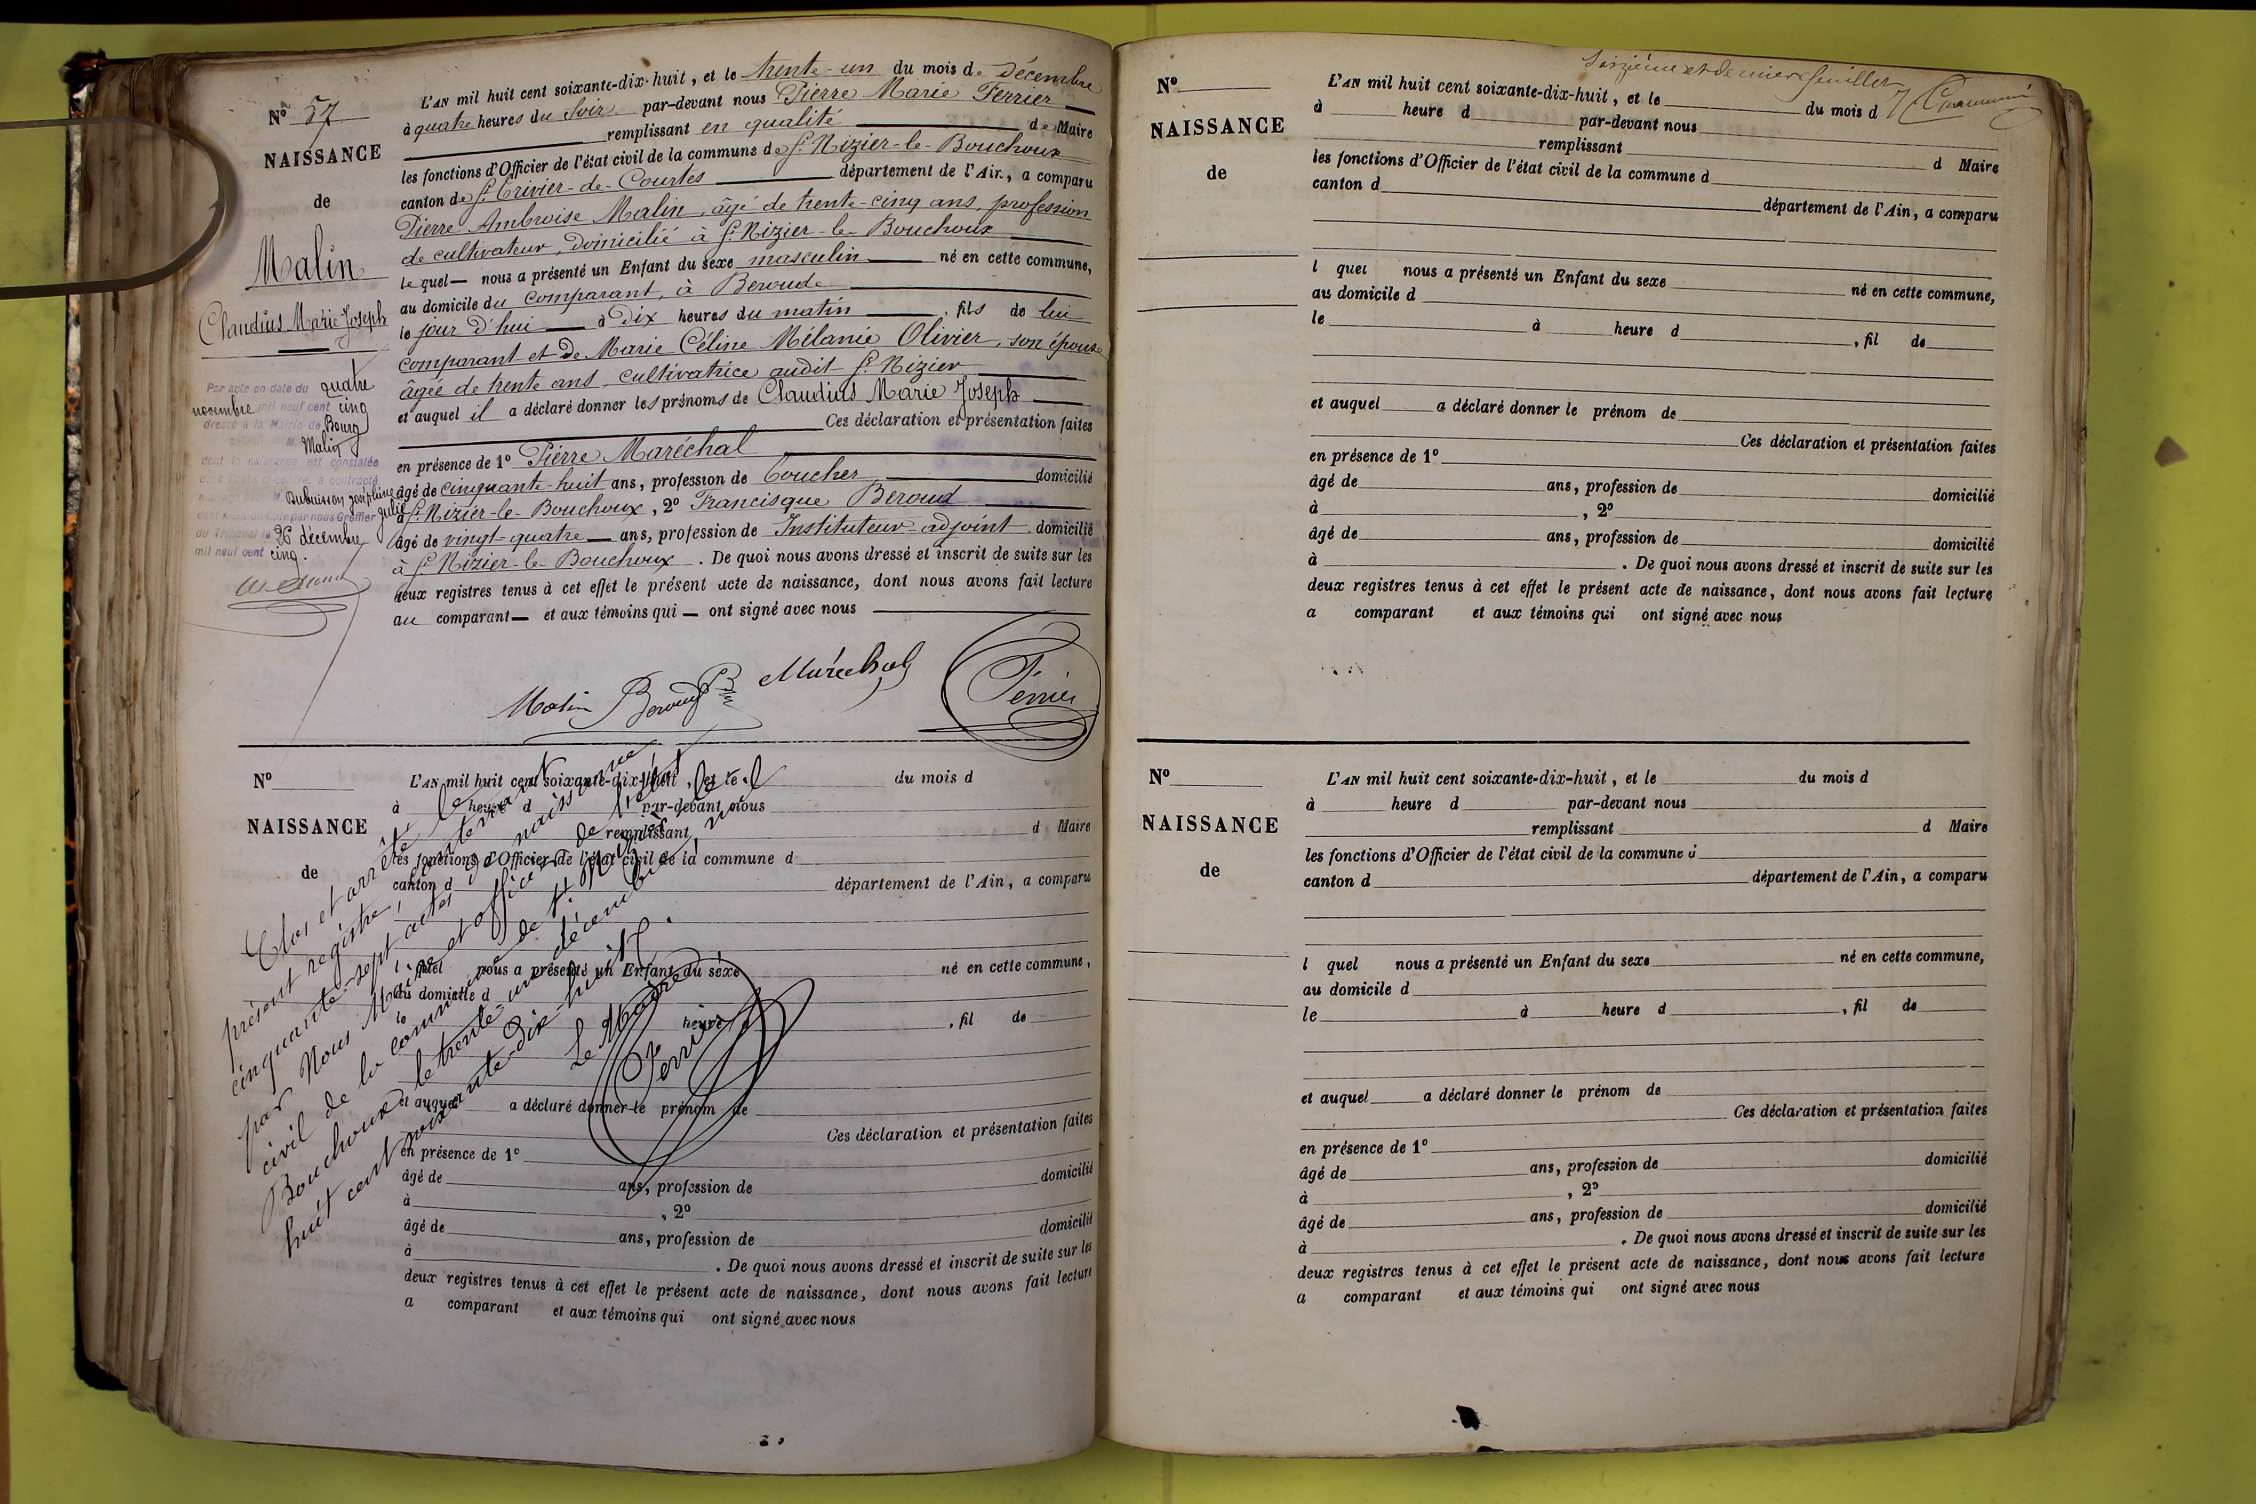 Nº 57
NAISSANCE
de
Malin
Claudius Marie Joseph
Par acte en date du quatre
novembre mil neuf cent cinq
dressé à la Mairie de Bourg
Malin
dont la naissance est constatée
Dubuisson Joséphine
Julie
par nous Greffier
du Tribunal le 26 décembre
mil neuf cent cinq.
L'AN mil huit cent soixante-dix-huit, et le trente-un du mois de Décembre
à quatre heures du Soir par-devant nous Pierre Marie Ferrier
remplissant en qualité de Maire
les fonctions d'Officier de l'état civil de la commune de St Nizier-le-Bouchoux
canton de St Trivier-de-Courtes département de l'Ain, a comparu
Pierre Ambroise Malin, âgé de trente-cinq ans, profession
de cultivateur, domicilié à St Nizier-le-Bouchoux
lequel nous a présenté un Enfant du sexe masculin né en cette commune,
au domicile du comparant, à Beroude
le jour d'hui à dix heures du matin, fils de lui
comparant et de Marie Céline Mélanie Olivier, son épouse
âgée de trente ans, cultivatrice audit St Nizier
et auquel il a déclaré donner les prénoms de Claudius Marie Joseph
Ces déclaration et présentation faites
en présence de 1º Pierre Maréchal
âgé de cinquante-huit ans, profession de Boucher domicilié
à St Nizier-le-Bouchoux, 2º Francisque Beroud
âgé de vingt-quatre ans, profession de Instituteur adjoint domicilié
à St Nizier-le-Bouchoux. De quoi nous avons dressé et inscrit de suite sur les
deux registres tenus à cet effet le présent acte de naissance, dont nous avons fait lecture
au comparant et aux témoins qui ont signé avec nous
Malin Beroud Maréchal Ferrier
Nº
NAISSANCE
de
L'AN mil huit cent soixante-dix-huit, et le du mois d
à heure d par-devant nous
remplissant d Maire
les fonctions d'Officier de l'état civil de la commune d
canton d département de l'Ain, a comparu
l quel nous a présenté un Enfant du sexe né en cette commune,
au domicile d
le à heure d, fil de
et auquel a déclaré donner le prénom de
Ces déclaration et présentation faites
en présence de 1º
âgé de ans, profession de domicilié
à, 2º
âgé de ans, profession de domicilié
à. De quoi nous avons dressé et inscrit de suite sur les
deux registres tenus à cet effet le présent acte de naissance, dont nous avons fait lecture
a comparant et aux témoins qui ont signé avec nous
Clos et arrêté le
présent registre, contenant
cinquante-sept actes de naissance
par Nous Maire et officier de l'état
civil de la commune de St Nizier le
Bouchoux le trente-un décembre mil
huit cent soixante-dix-huit.
Le Maire
Ferrier
Seizième et dernier feuillet
Nº
NAISSANCE
de
L'AN mil huit cent soixante-dix-huit, et le du mois d
à heure d par-devant nous
remplissant d Maire
les fonctions d'Officier de l'état civil de la commune d
canton d département de l'Ain, a comparu
l quel nous a présenté un Enfant du sexe né en cette commune,
au domicile d
le à heure d, fil de
et auquel a déclaré donner le prénom de
Ces déclaration et présentation faites
en présence de 1º
âgé de ans, profession de domicilié
à, 2º
âgé de ans, profession de domicilié
à. De quoi nous avons dressé et inscrit de suite sur les
deux registres tenus à cet effet le présent acte de naissance, dont nous avons fait lecture
a comparant et aux témoins qui ont signé avec nous
Nº
NAISSANCE
de
L'AN mil huit cent soixante-dix-huit, et le du mois d
à heure d par-devant nous
remplissant d Maire
les fonctions d'Officier de l'état civil de la commune d
canton d département de l'Ain, a comparu
l quel nous a présenté un Enfant du sexe né en cette commune,
au domicile d
le à heure d, fil de
et auquel a déclaré donner le prénom de
Ces déclaration et présentation faites
en présence de 1º
âgé de ans, profession de domicilié
à, 2º
âgé de ans, profession de domicilié
à. De quoi nous avons dressé et inscrit de suite sur les
deux registres tenus à cet effet le présent acte de naissance, dont nous avons fait lecture
a comparant et aux témoins qui ont signé avec nous